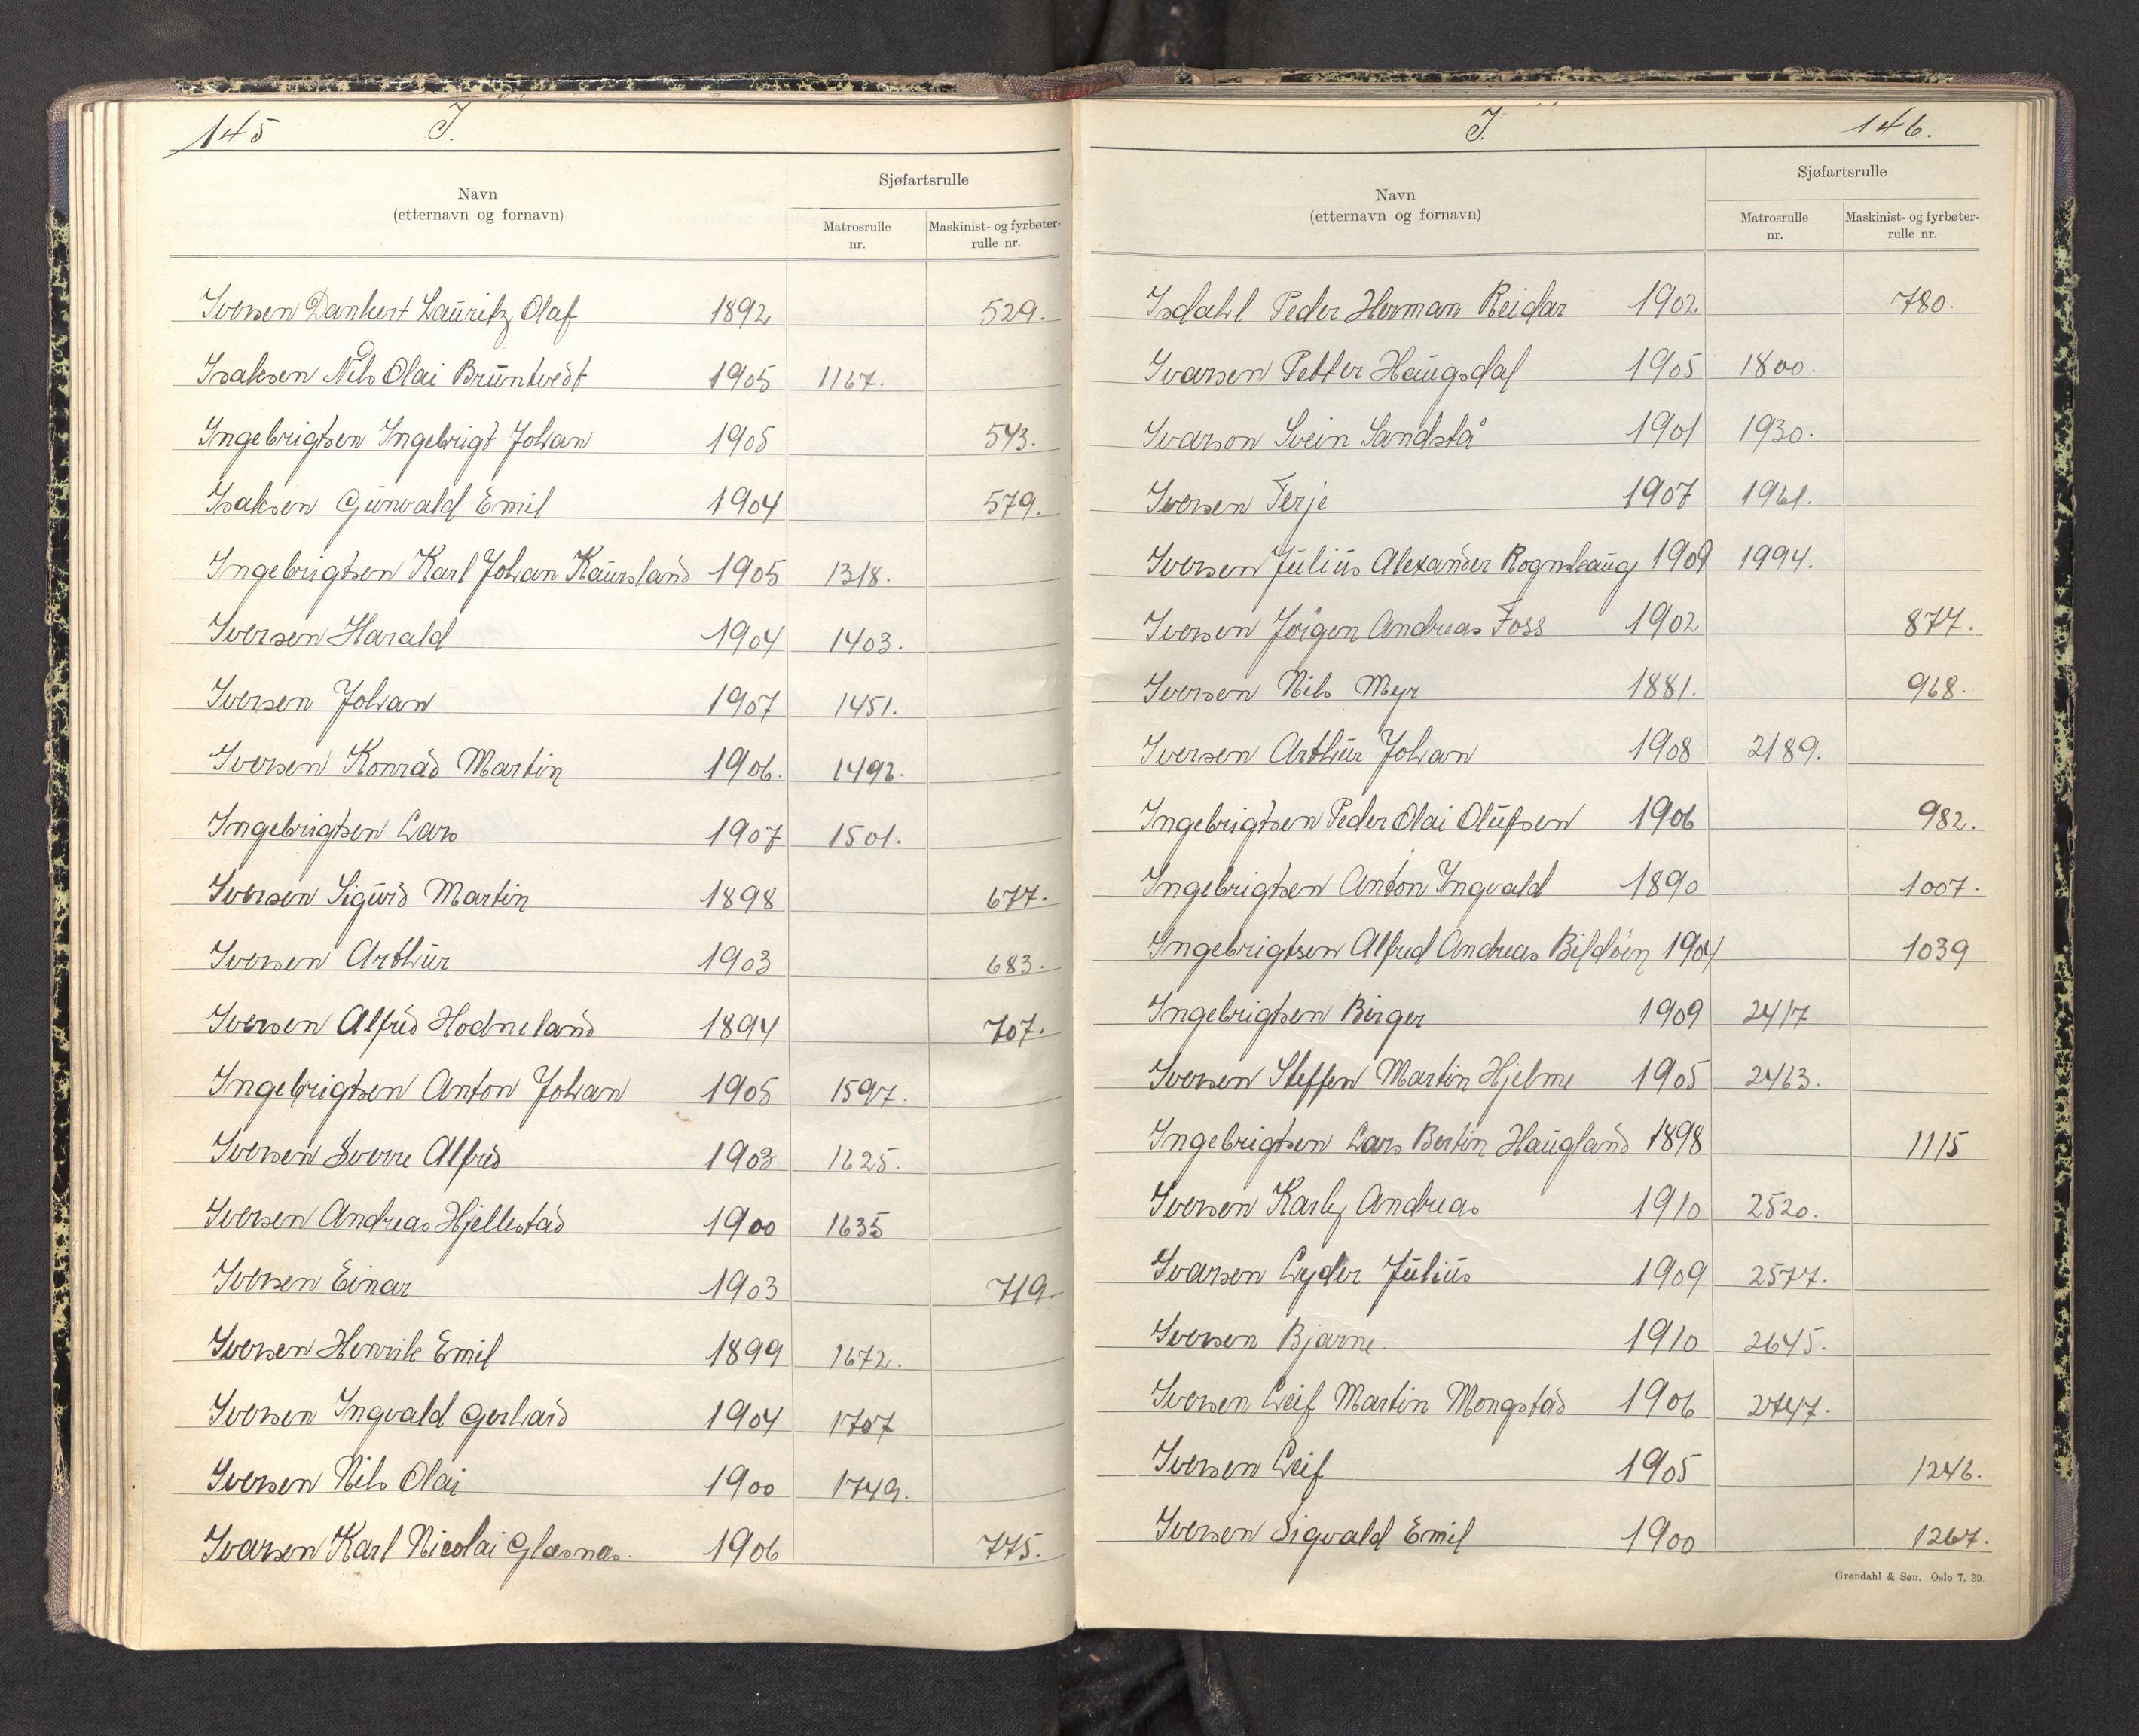 145 I.
Navn
(etternavn og fornavn)
Sjøfartsrulle
Matrosrulle nr.
Maskinist- og fyrbøter-rulle nr.
Iversen Dankert Lauritz Olaf 1892 529.
Isaksen Nils Olai Brüntvedt 1905 1167.
Ingebrigtsen Ingebrigt Johan 1905 543.
Isaksen Gunvald Emil 1904 579.
Ingebrigtsen Karl Johan Kaursland 1905 1318.
Iversen Harald 1904 1403.
Iversen Johan 1907 1451.
Iversen Konrad Martin 1906. 1492.
Ingebrigtsen Lars 1907 1501.
Iversen Sigurd Martin 1898 677.
Iversen Arthur 1903 683.
Iversen Alfred Hodneland 1894 707.
Ingebrigtsen Anton Johan 1905 1597.
Iversen Sverre Alfred 1903 1625.
Iversen Andreas Hjellestad 1900 1635
Iversen Einar 1903 719.
Iversen Henrik Emil 1899 1672.
Iversen Ingvald Gerhard 1904 1707
Iversen Nils Olai 1900 1749.
Ivarsen Karl Nicolai Glæsnæs. 1906 775.
I. 146.
Navn
(etternavn og fornavn)
Sjøfartsrulle
Matrosrulle nr.
Maskinist- og fyrbøter-rulle nr.
Isdahl Peder Herman Reidar 1902 780.
Ivarsen Petter Haugsdal 1905 1800.
Ivarson Svein Sandstå 1901 1930.
Iversen Terje 1907 1961.
Iversen Julius Alexander Rognshaug 1909 1994.
Iversen Jörgen Andreas Foss 1902 877.
Iversen Nils Myr 1881. 968.
Iversen Arthur Johan 1908 2189.
Ingebrigtsen Peder Olai Olufsen 1906 982.
Ingebrigtsen Anton Ingvald 1890 1007.
Ingebrigtsen Alfred Andreas Bildöen 1904 1039
Ingebrigtsen Birger 1909 2417
Iversen Steffen Martin Hjelme 1905 2463.
Ingebrigtsen Lars Bertin Haugland 1898 1115
Iversen Karly Andreas 1910 2520.
Ivarsen Lyder Julius 1909 2577.
Iversen Bjarne 1910 2645.
Iversen Leif Martin Mongstad 1906 2747.
Iversen Leif 1905 1246.
Iversen Sigvald Emil 1900 1267.
Grøndahl & Søn. Oslo 7. 39.